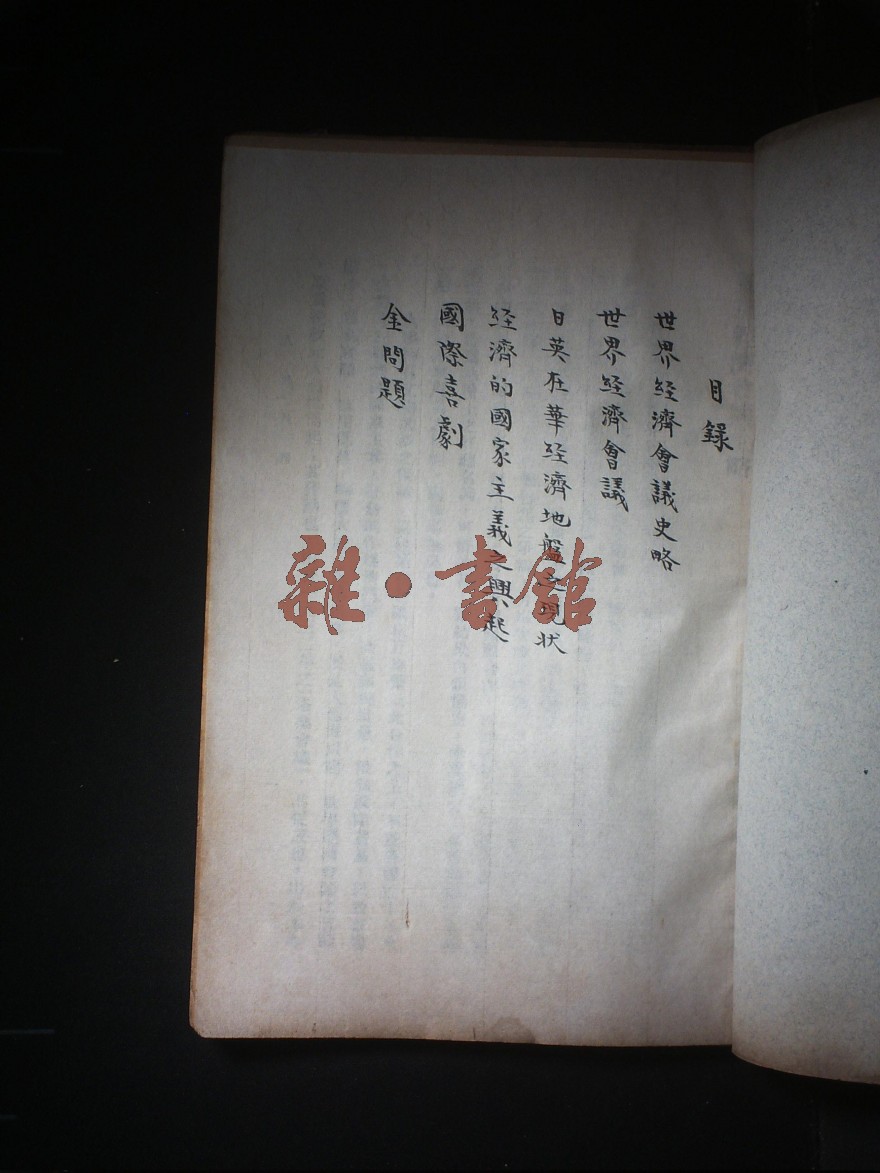 目錄
世界経濟會議史略
世界経濟會議
日英在華経濟地盤之現状
経濟的國家主義之興起
國際喜劇
金問題
雜·書館